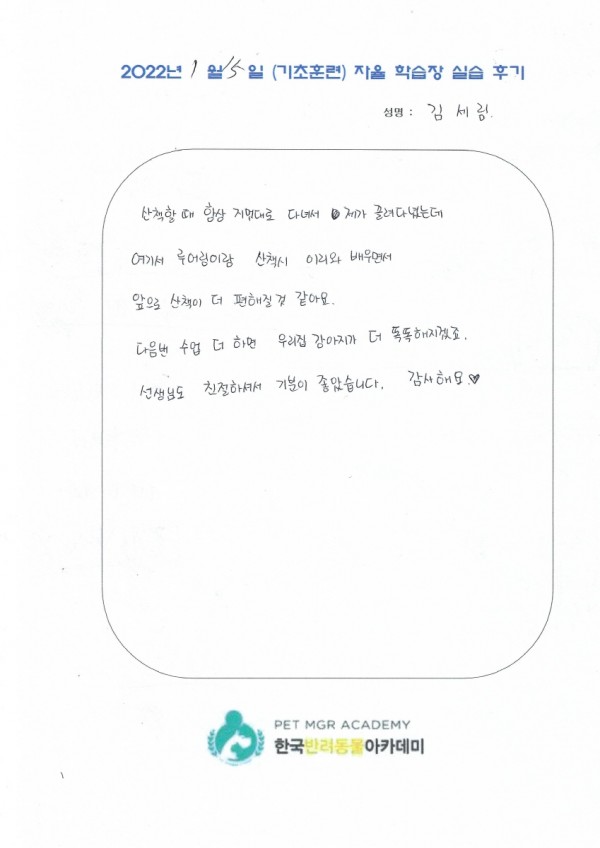 2022년 1월 15일 (기초훈련) 자율 학습장 실습 후기
성명 : 김세림.
산책할 때 항상 지멋대로 다녀서 제가 끌려다녔는데
여기서 루어링이랑 산책시 이리와 배우면서
앞으로 산책이 더 편해질것 같아요.
다음번 수업 더 하면 우리집 강아지가 더 똑똑해지겠죠.
선생님도 친절하셔서 기분이 좋았습니다. 감사해요♥
PET MGR ACADEMY
한국반려동물아카데미